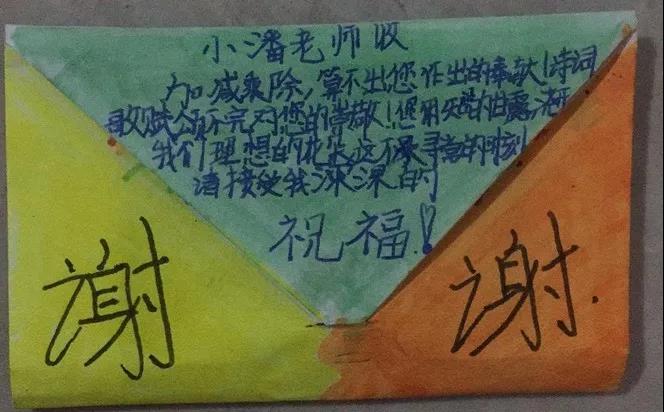 小潘老师收
加减乘除,算不出您作出的奉献!诗词
歌赋颂不完对您的崇敬!您用知识的甘露,浇开
我们理想的花朵,这不寻常的时刻
请接受我深深的
祝福!
谢 谢.